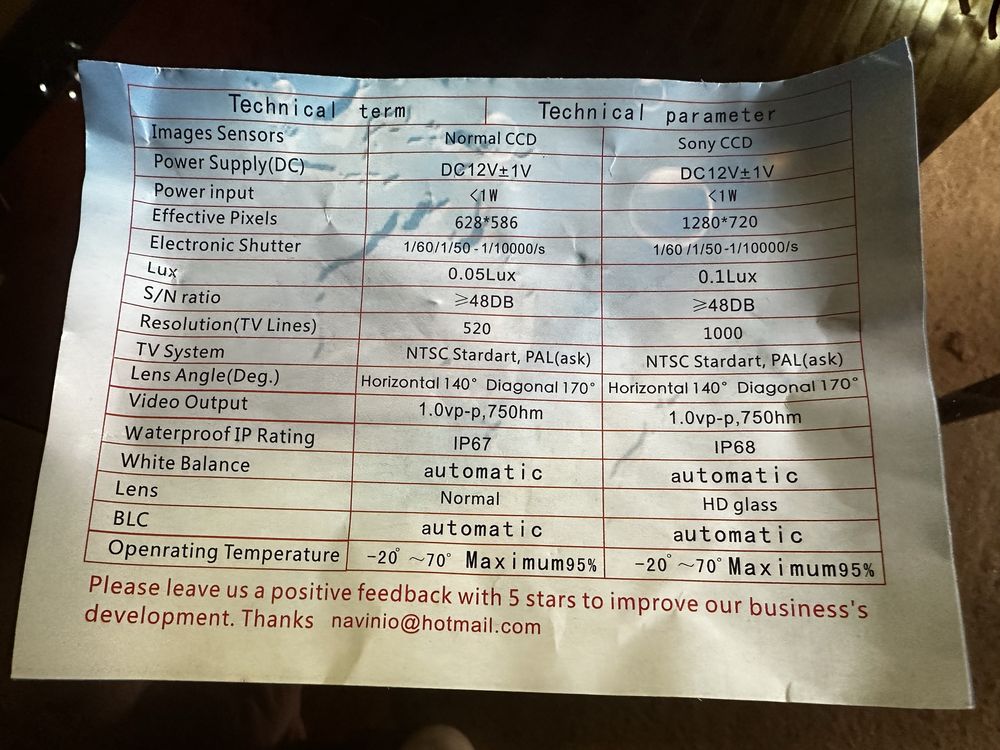 Technical term Technical parameter
Images Sensors Normal CCD Sony CCD
Power Supply(DC) DC12V±1V DC12V±1V
Power input <1W <1W
Effective Pixels 628*586 1280*720
Electronic Shutter 1/60/1/50-1/10000/s 1/60/1/50-1/10000/s
Lux 0.05Lux 0.1Lux
S/N ratio ≥48DB ≥48DB
Resolution(TV Lines) 520 1000
TV System NTSC Stardart, PAL(ask) NTSC Stardart, PAL(ask)
Lens Angle(Deg.) Horizontal 140° Diagonal 170° Horizontal 140° Diagonal 170°
Video Output 1.0vp-p,750hm 1.0vp-p,750hm
Waterproof IP Rating IP67 IP68
White Balance automatic automatic
Lens Normal HD glass
BLC automatic automatic
Openrating Temperature -20°~70° Maximum95% -20°~70° Maximum95%
Please leave us a positive feedback with 5 stars to improve our business's
development. Thanks navinio@hotmail.com